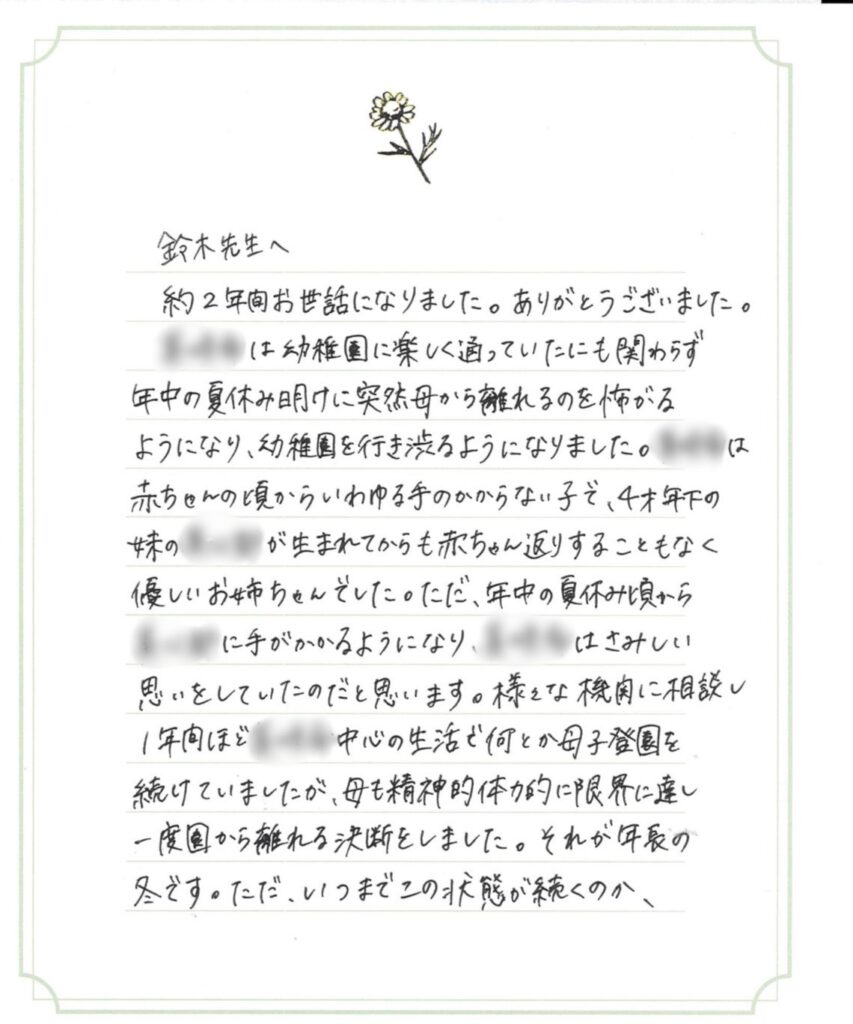 鈴木先生へ
約2年間お世話になりました。ありがとうございました。
は幼稚園に楽しく通っていたにも関わらず
年中の夏休み明けに突然母から離れるのを怖がる
ようになり、幼稚園を行き渋るようになりました。は
赤ちゃんの頃からいわゆる手のかからない子で、4才年下の
妹のが生まれてからも赤ちゃん返りすることもなく
優しいお姉ちゃんでした。ただ、年中の夏休み頃から
に手がかかるようになり、はさみしい
思いをしていたのだと思います。様々な機関に相談し
1年間ほど中心の生活で何とか母子登園を
続けていましたが、母も精神的体力的に限界に達し
一度園から離れる決断をしました。それが年長の
冬です。ただ、いつまでこの状態が続くのか、